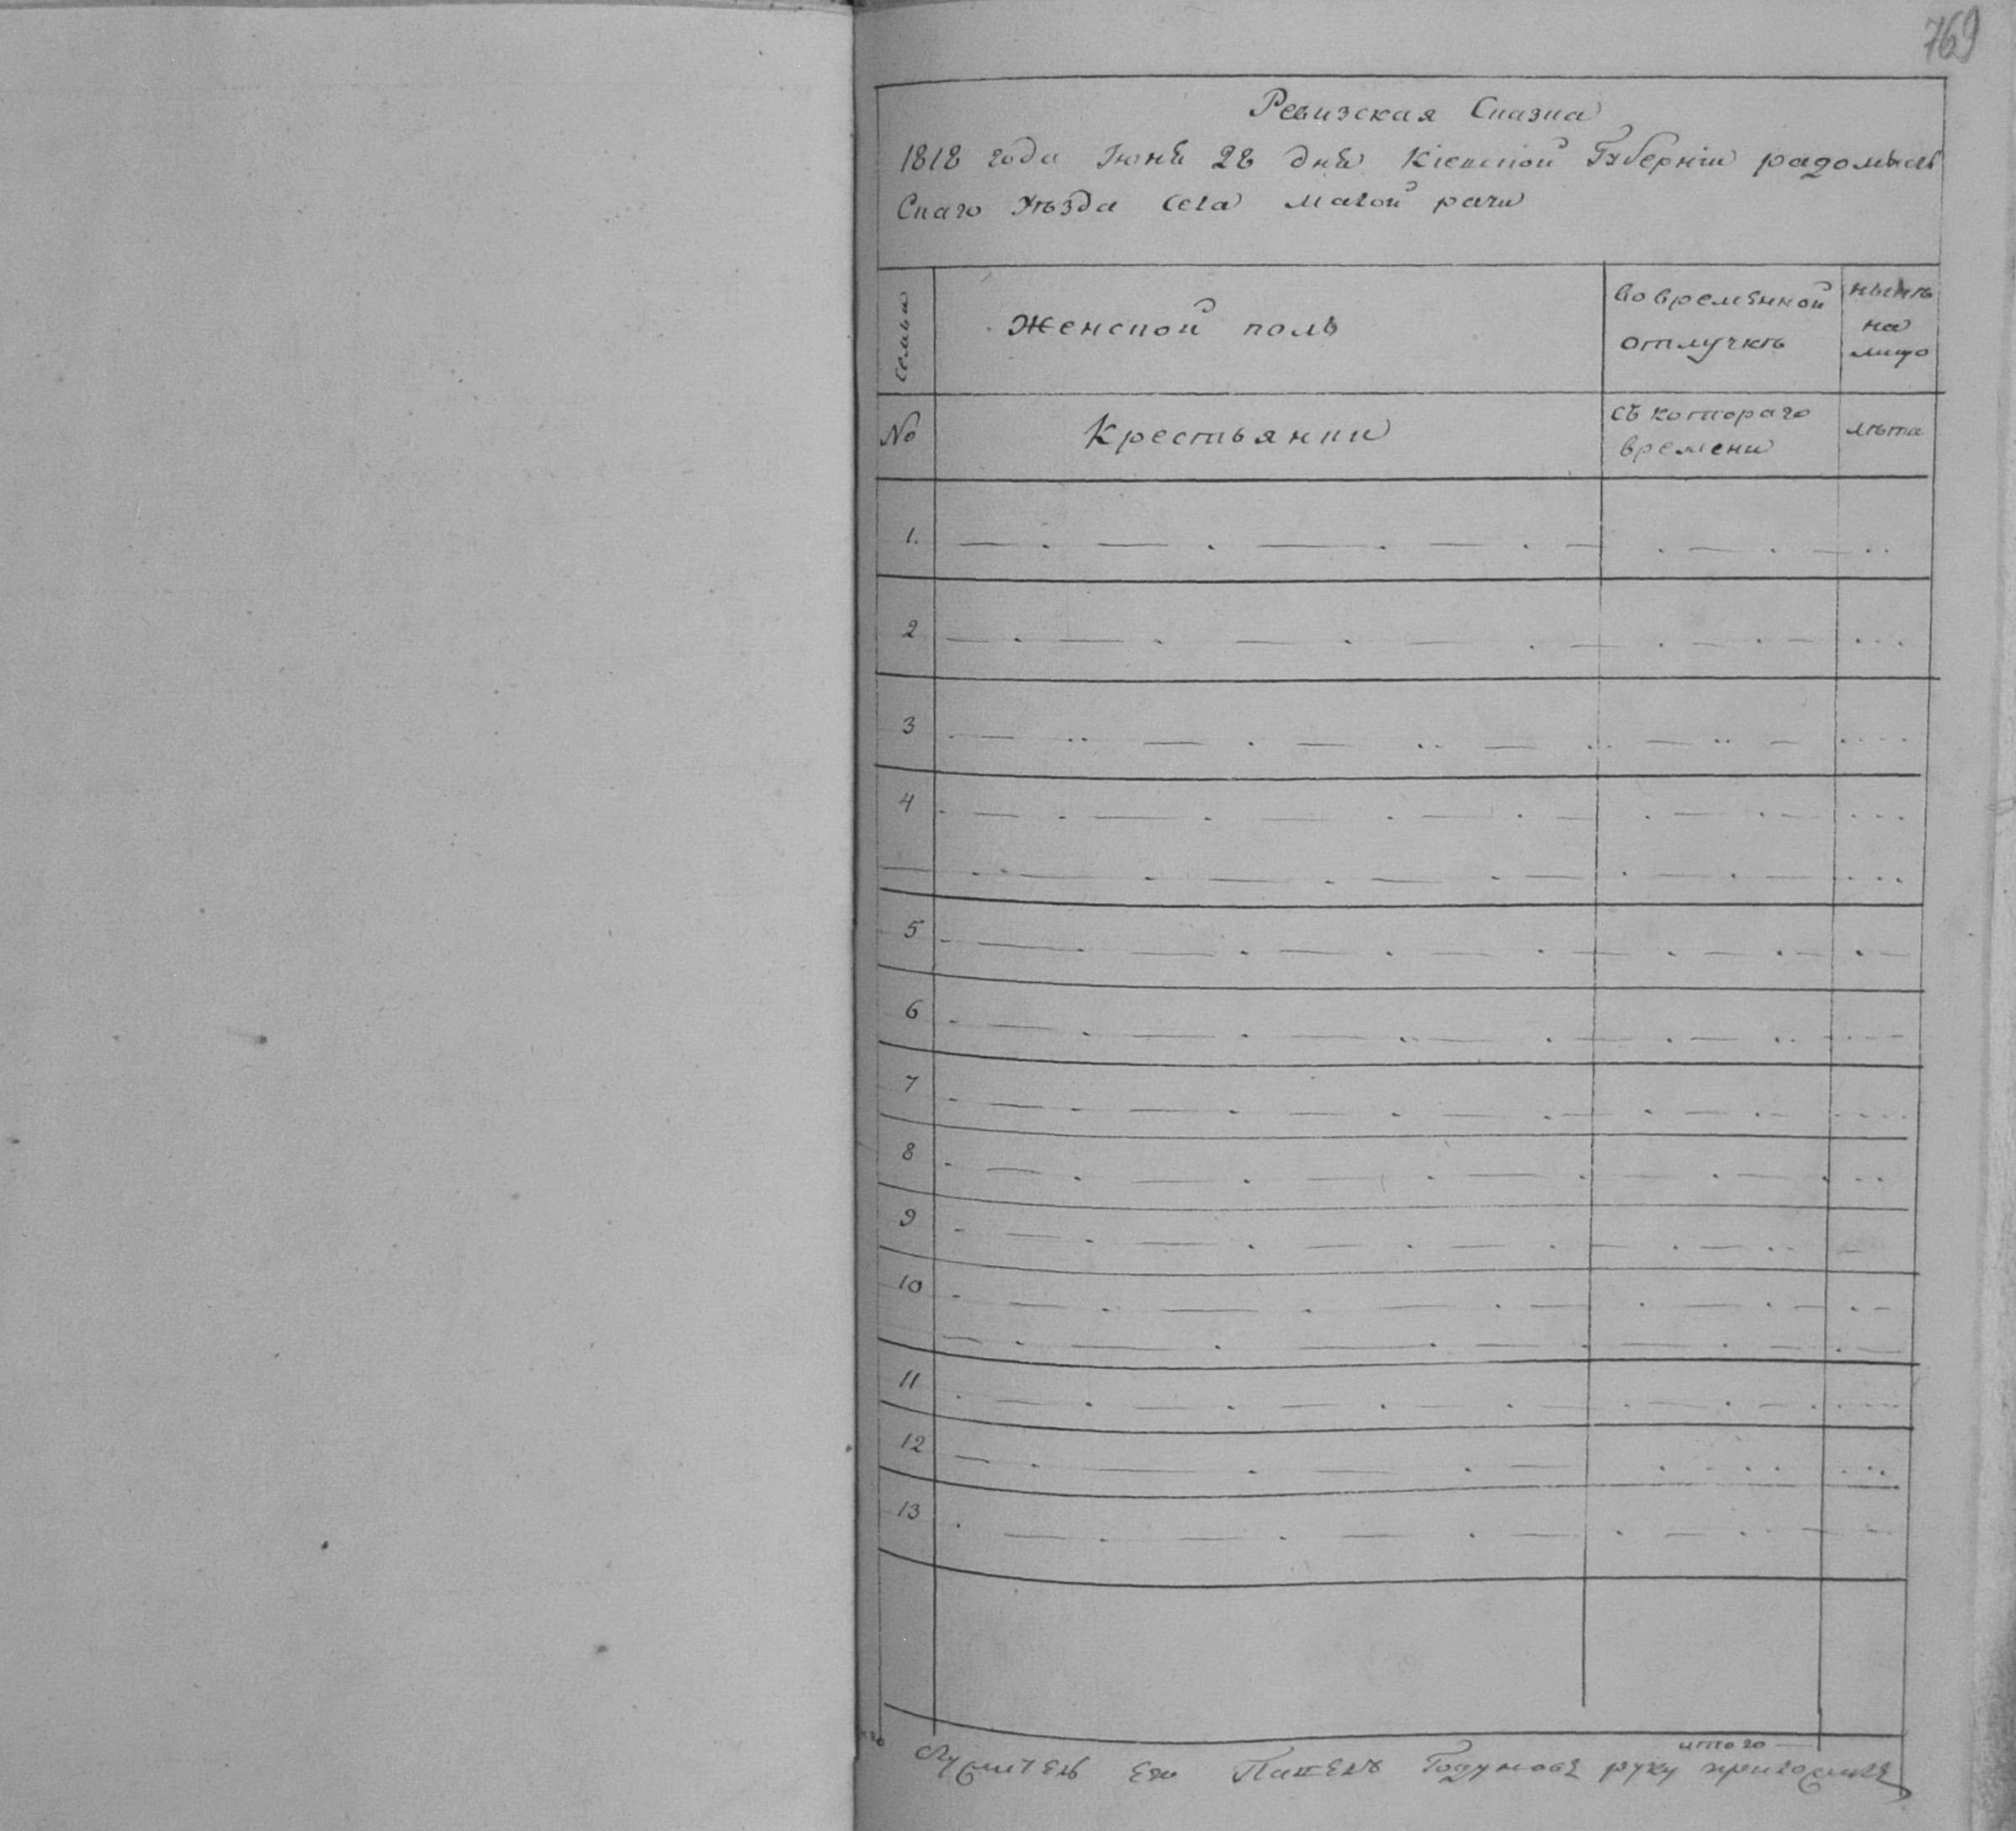 769
Ревизская Сказка
1818 года Іюня 28 дня Кіевской Губерніи радомысль
Скаго Уѣзда Села малой рачи
Семьи
Женской полъ
во временной
отлучкѣ
нынѣ
на
лицо
№
Крестьянки
съ котораго
времени
лѣта
1.
2
3
4
5
6
7
8
9
10
11
12
13
итого
Служитель его Годуновъ руку приложилъ